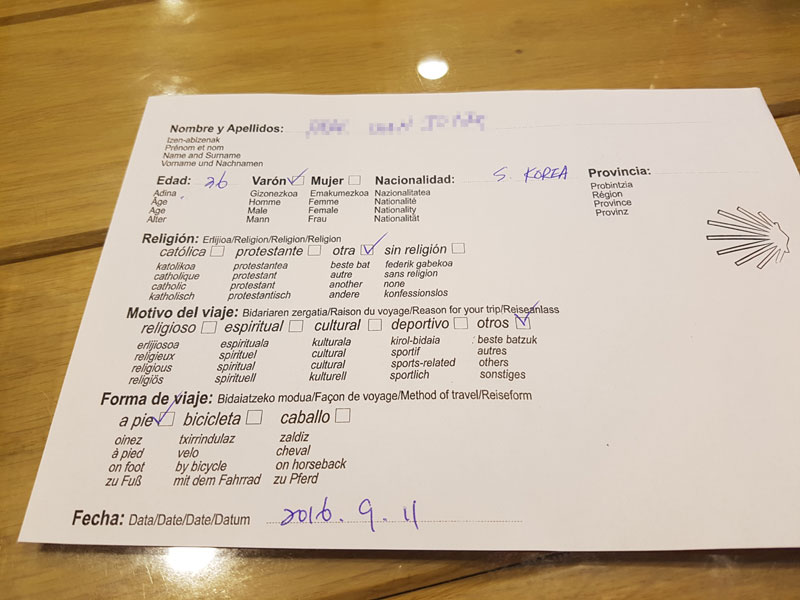 Nombre y Apellidos:
Izen-abizenak
Prénom et nom
Name and Surname
Vorname und Nachnamen
Edad: 36 Varón Mujer Nacionalidad: S. KOREA Provincia:
Adina Gizonezkoa Emakumezkoa Nazionalitatea Probintzia
Âge Homme Femme Nationalité Région
Age Male Female Nationality Province
Alter Mann Frau Nationalität Provinz
Religión: Erlijioa/Religion/Religion/Religion
católica protestante otra sin religión
katolikoa protestantea beste bat federik gabekoa
catholique protestant autre sans religion
catholic protestant another none
katholisch protestantisch andere konfessionslos
Motivo del viaje: Bidariaren zergatia/Raison du voyage/Reason for your trip/Reiseanlass
religioso espiritual cultural deportivo otros
erlijiosoa espirituala kulturala kirol-bidaia beste batzuk
religieux spirituel cultural sportif autres
religious spiritual cultural sports-related others
religiös spirituell kulturell sportlich sonstiges
Forma de viaje: Bidaiatzeko modua/Façon de voyage/Method of travel/Reiseform
a pie bicicleta caballo
oinez txirrindulaz zaldiz
à pied velo cheval
on foot by bicycle on horseback
zu Fuß mit dem Fahrrad zu Pferd
Fecha: Data/Date/Date/Datum 2016. 9. 11